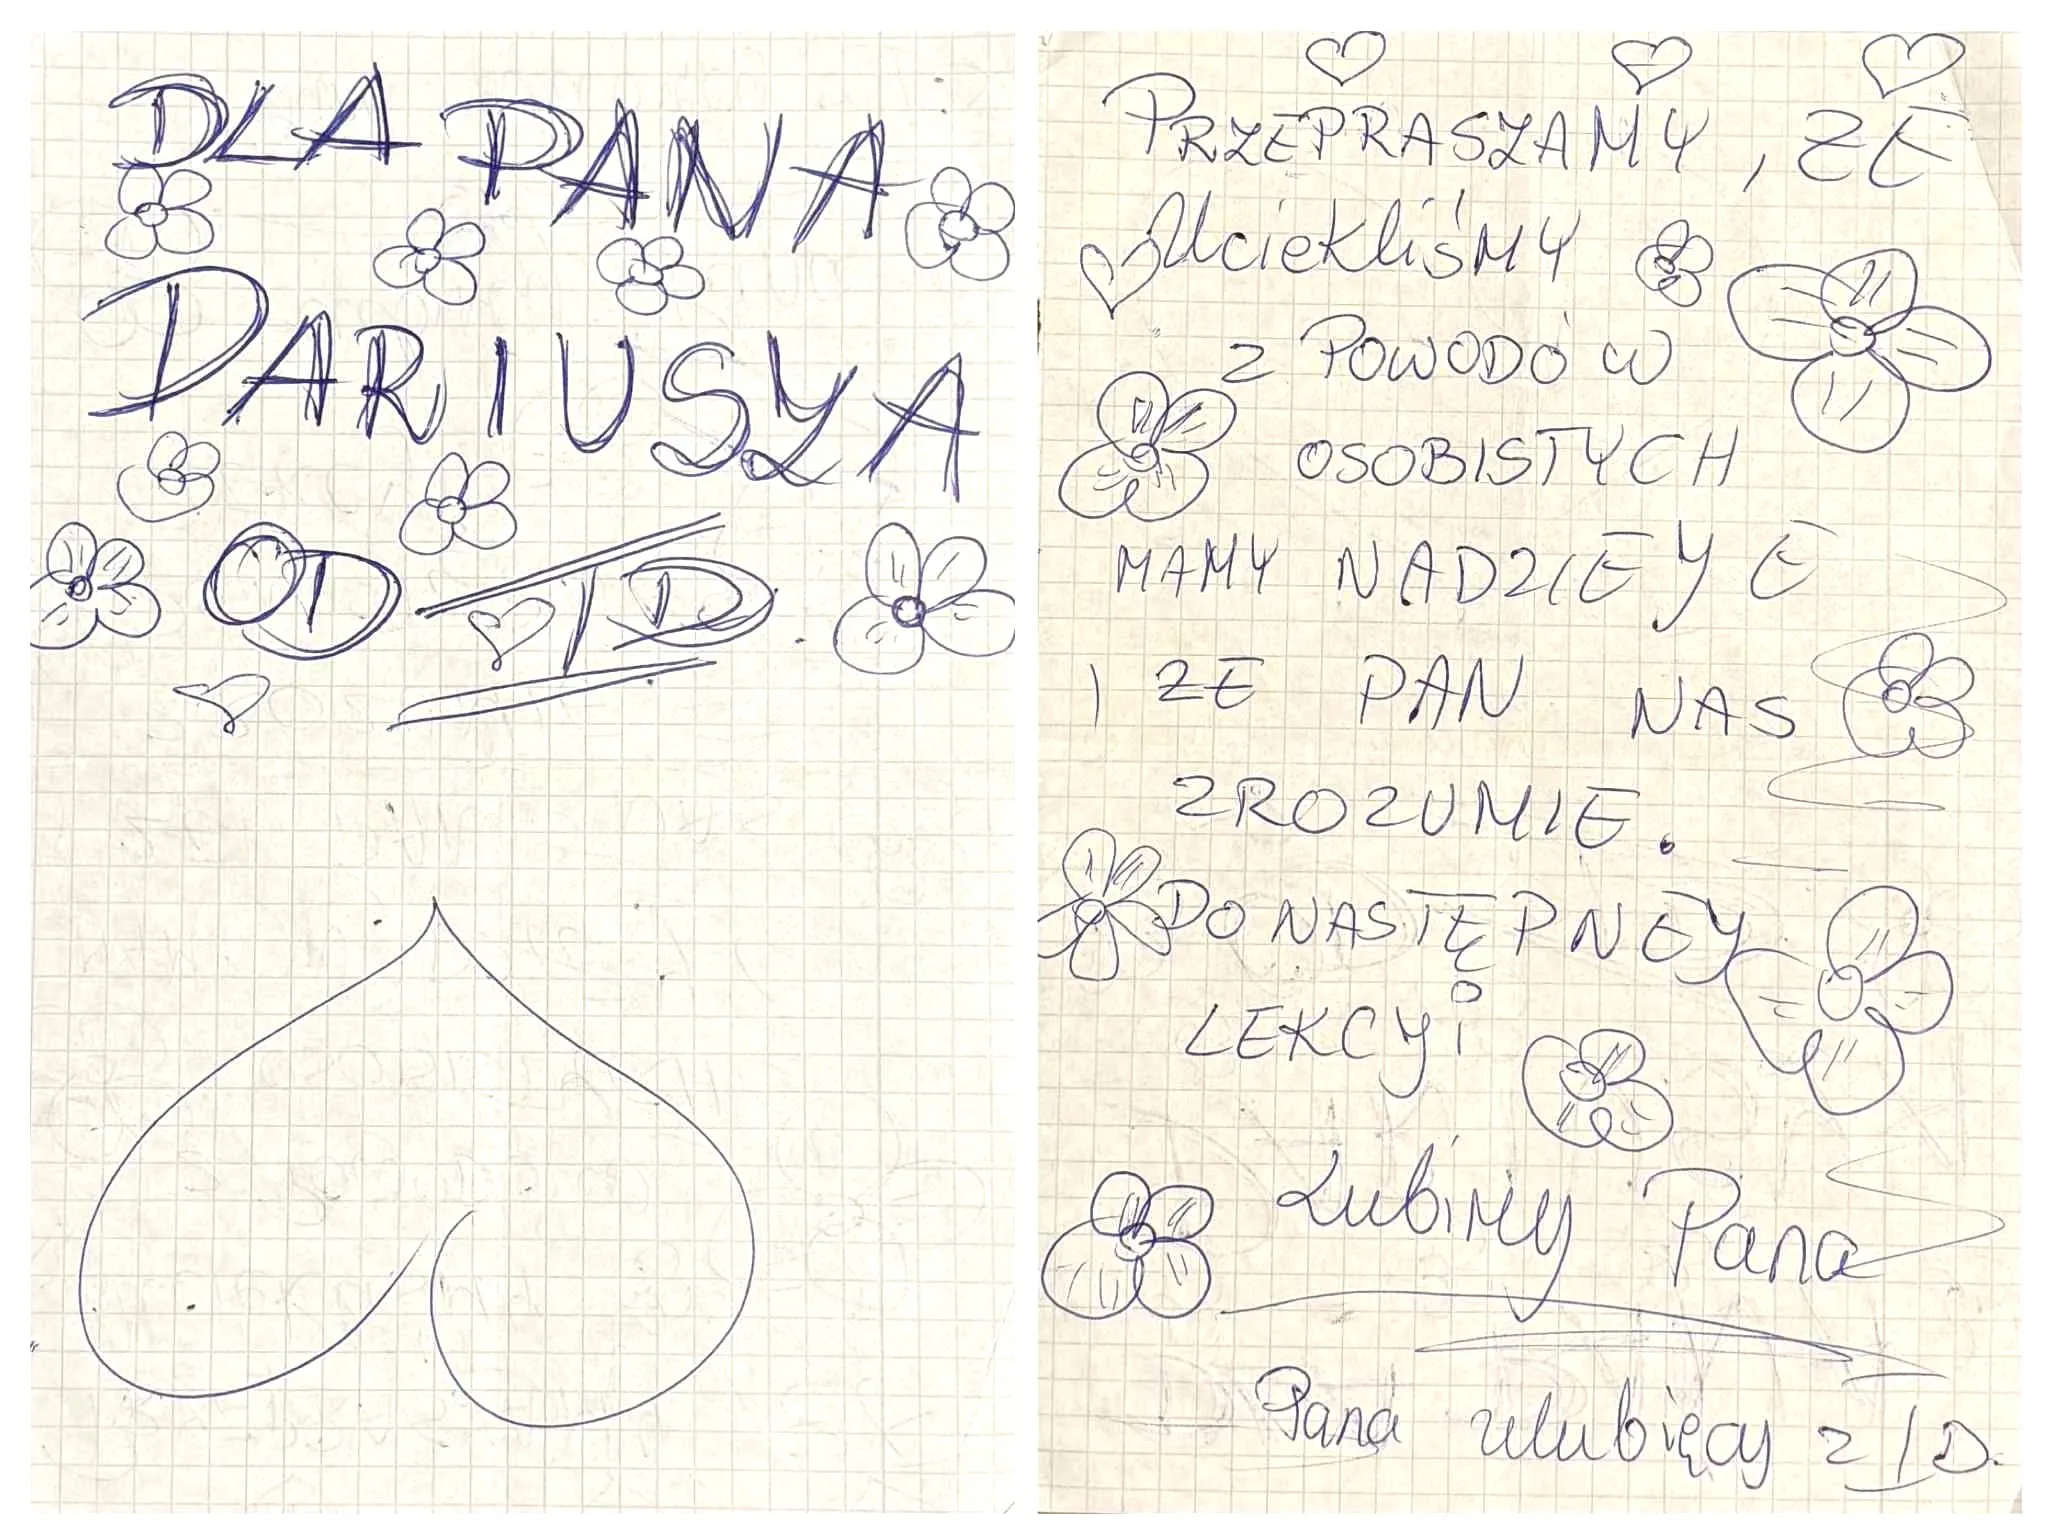 DLA PANA
DARIUSZA
OD ID.
PRZEPRASZAMY, ZE
UciekliśMY
Z POWODÓW
OSOBISTYCH
MAMY NADZIEJE
I ZE PAN NAS
ZROZUMIE.
DO NASTĘPNEJ
LEKCJi
Lubimy Pana
Pana ulubięcy z ID.